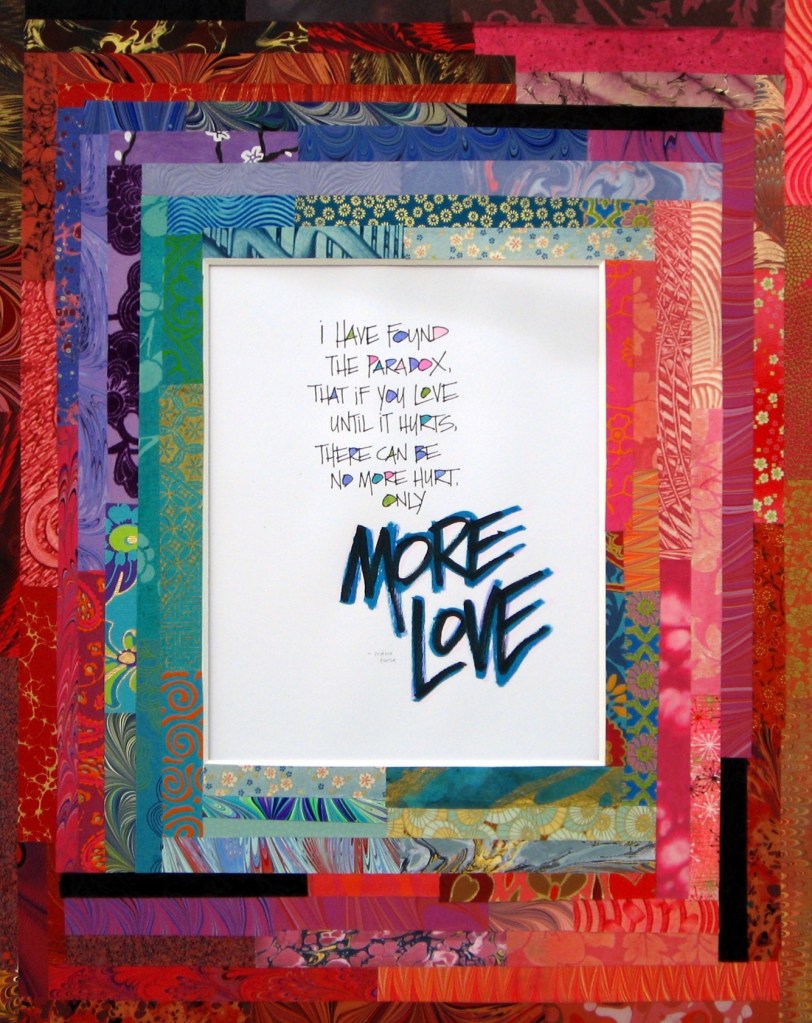 i HAVE FOUND
THE PARADOX,
THAT iF YOU LOVE
UNTIL iT HURTS,
THERE CAN BE
NO MORE HURT.
ONLY
MORE
LOVE